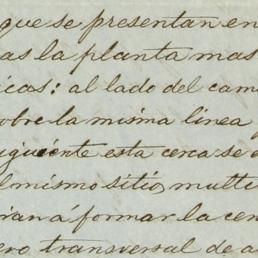 que se presentan en
as la planta mas
icas: al lado del cam
obre la misma linea
iguiente esta cerca se
l mismo sitio, multi
iran á formar la cen
ero transversal de a